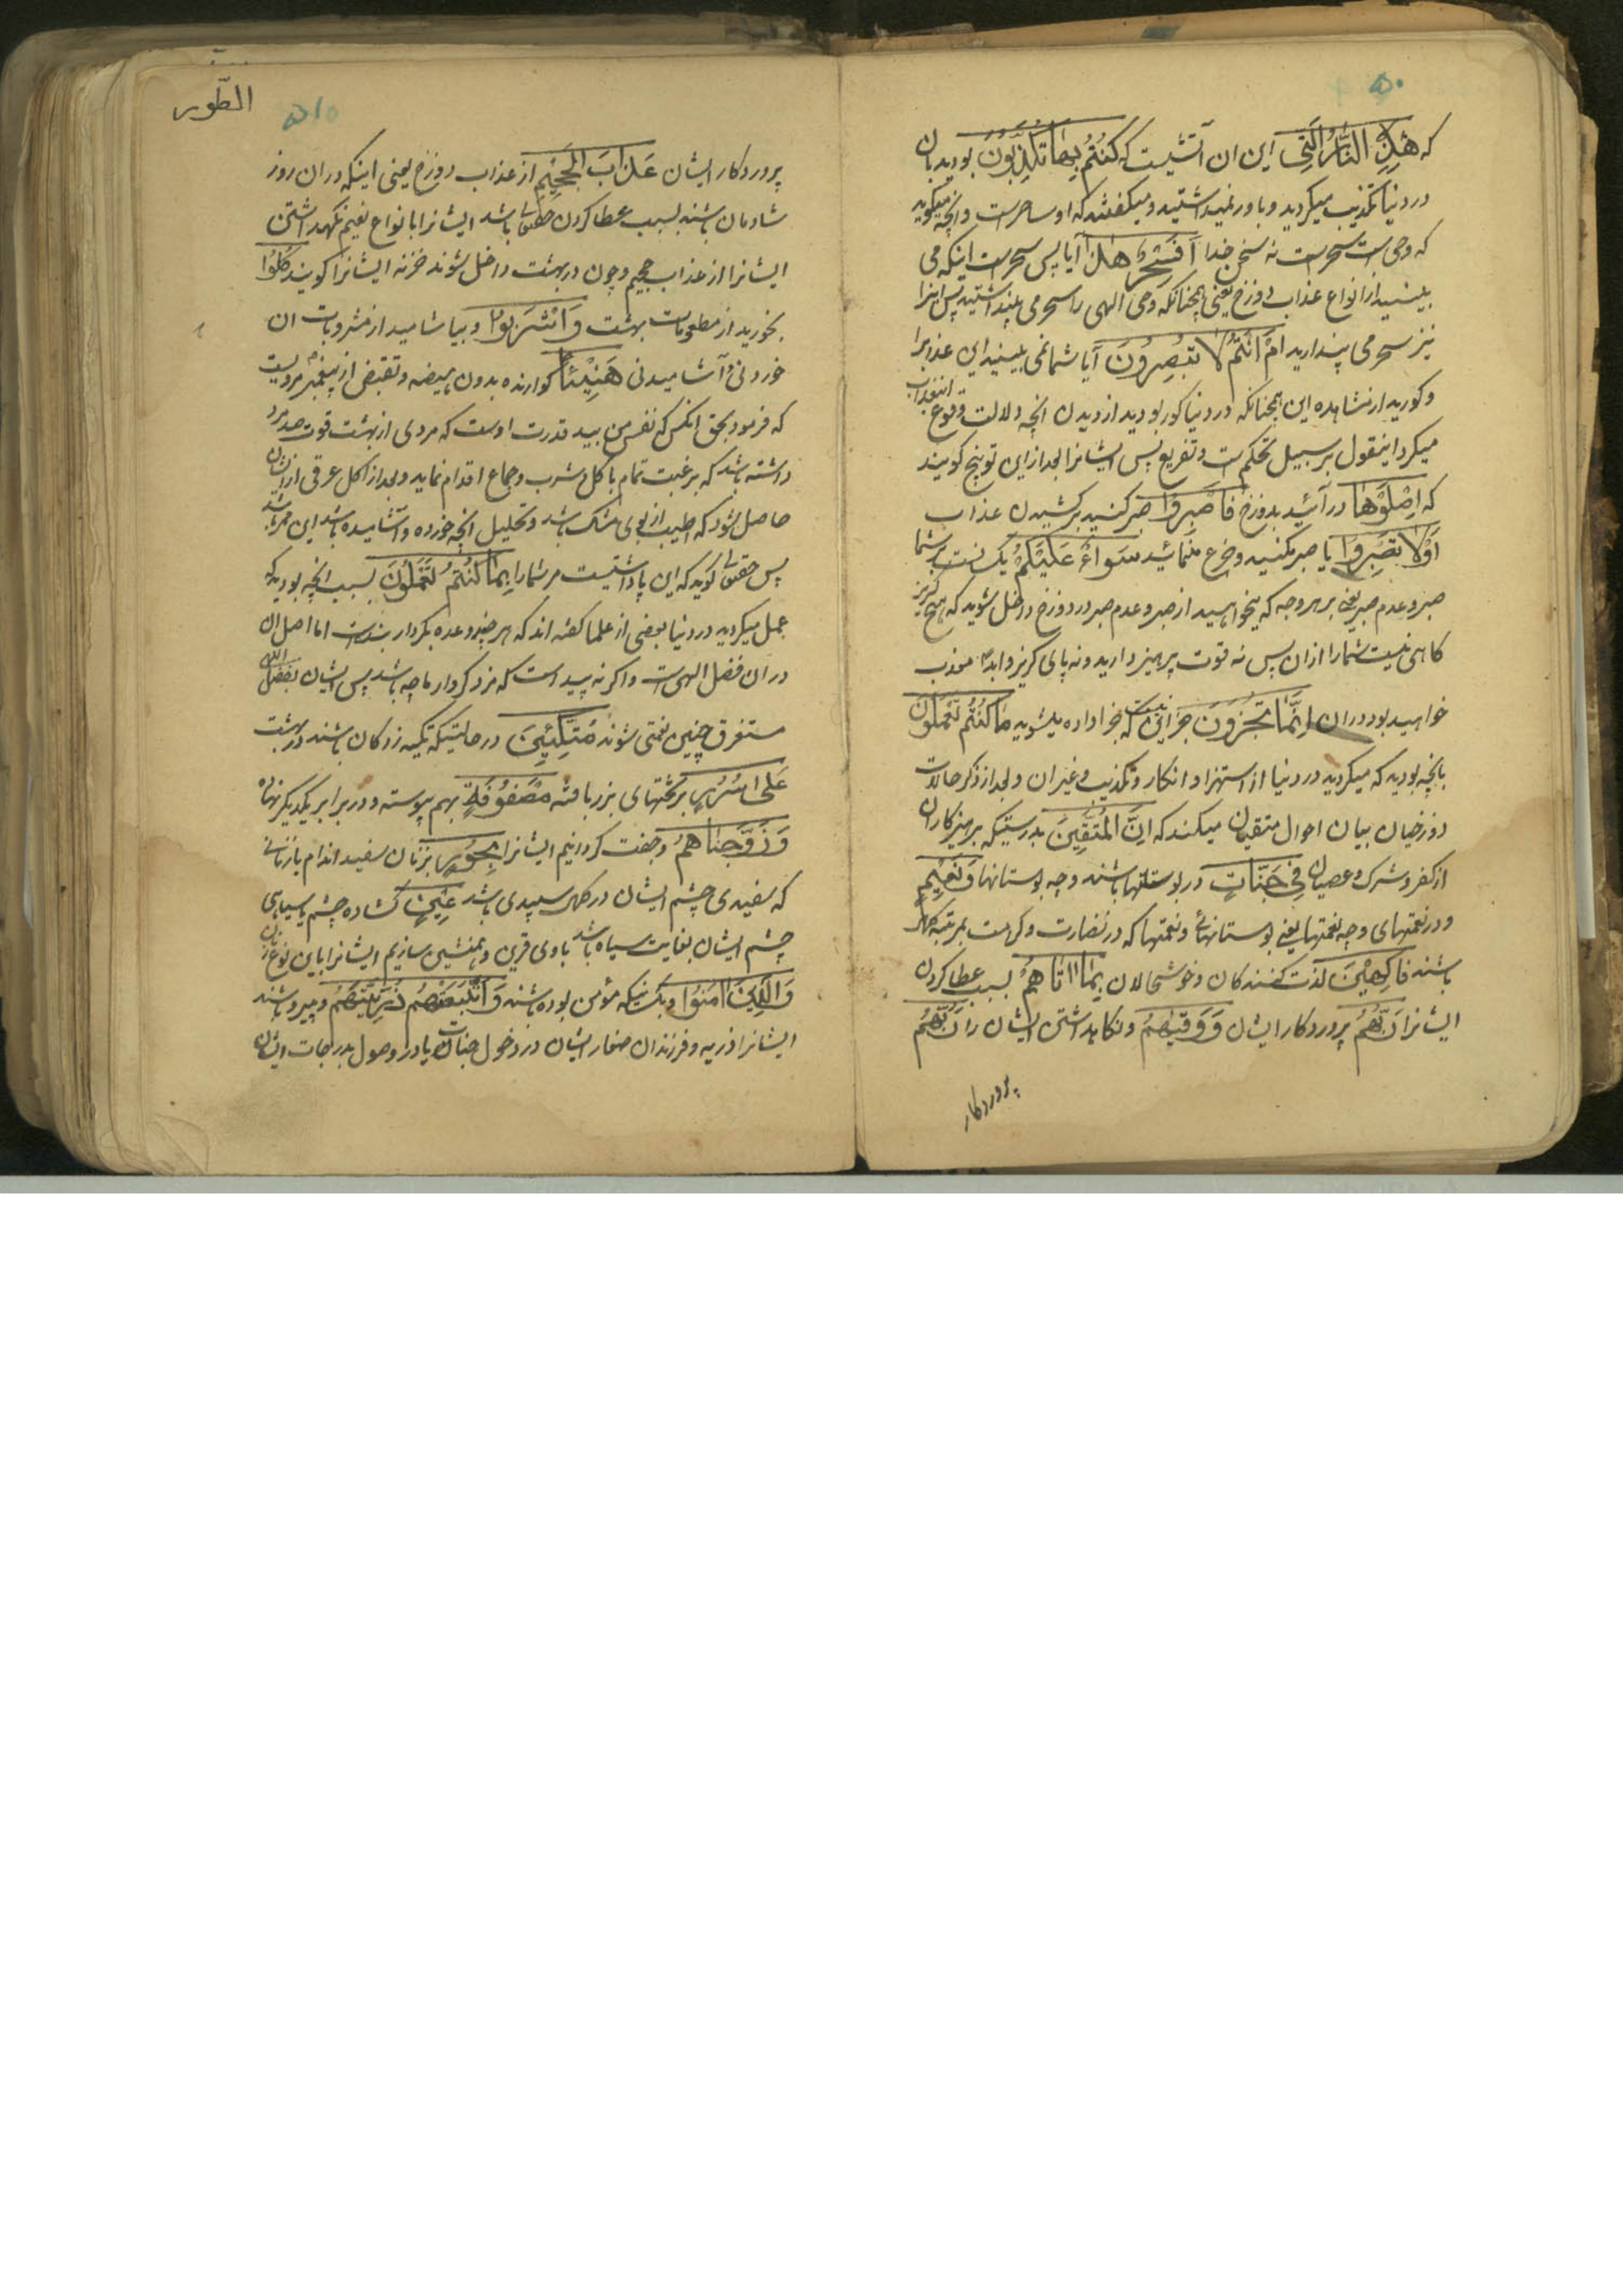 که هٰذِهِ النَّارُ الَّتِی این ان آتشیست که کُنْتُمْ بِهَا تُکَذِّبُونَ بودید بان
در دنیا تکذیب میکردید و باور نمیداشتید و میکفتند که او ساحرست و انچه میکوید
که وحی است سحرست نه سخن خدا اَفَسِحْرٌ هٰذَا آیا پس سحرست اینکه می
بینید از انواع عذاب دوزخ یعنی همچنانکه وحی الهی را سحر می پنداشتید پس اینرا
نیز سحر می پندارید اَمْ اَنْتُمْ لَا تُبْصِرُونَ آیا شما نمی بینید این عذابرا
و کورید از مشاهده این همچنانکه در دنیا کور بودید از دیدن انچه دلالت وقوع اینعذاب
میکرد اینقول بر سبیل تحکم است و تفریع پس ایشانرا بعد از این توبیخ کویند
که اِصْلَوْهَا در آئید بدوزخ فَاصْبِرُوا صبر کنید بر کشیدن عذاب
اَوْلَا تَصْبِرُوا یا صبر مکنید و جزع منمائید سَوَاءٌ عَلَیْکُمْ یکسانست بر شما
صبر و عدم صبر یعنی بر هر وجه که میخواهید از صبر و عدم صبر در دوزخ داخل شوید که هیچ گریز
کاهی نیست شما را از ان پس نه قوت پرهیز دارید و نه پای کریز و ابدا معذب
خواهید بود در ان اِنَّمَا تُجْزَوْنَ جز این نیست که جزا داده میشوید مَا کُنْتُمْ تَعْمَلُونَ
بانچه بودید که میکردید در دنیا از استهزا و انکار و تکذیب و غیر ان و بعد از ذکر حالات
دوزخیان بیان احوال متقیان میکند که اِنَّ الْمُتَّقِینَ بدرستیکه پرهیزکاران
از کفر و شرک و عصیان فِی جَنَّاتٍ در بوستانها باشند و چه بوستانها وَنَعِیمٍ
و در نعمتهای و چه نعمتها یعنی بوستانهائی و نعمتها که در نضارت و کرامت بمرتبه کمال
باشند فَاکِهِینَ لذت کنندکان و خوشحالان بِمَا اٰتَاهُمْ بسبب عطا کردن
ایشانرا رَبُّهُمْ پروردکار ایشان وَوَقٰیهُمْ و نکاهداشتن ایشان را رَبُّهُمْ
پروردکار
الطّور
۵۱۰
پروردکار ایشان عَذَابَ الْجَحِیمِ از عذاب دوزخ یعنی اینکه در ان روز
شادمان باشند بسبب عطا کردن حقتعالی باشد ایشانرا بانواع نعیم نکهداشتن
ایشانرا از عذاب جحیم و چون در بهشت داخل شوند خزنه ایشانرا کویند کُلُوا
بخورید از مطعومات بهشت وَاشْرَبُوا و بیاشامید از مشروبات ان
خوردنی و آشامیدنی هَنِیئًا کوارنده بدون هیضه و تقبض از پیغمبر مرویست
که فرمود بحق انکس که نفس من بید قدرت اوست که مردی از بهشت قوت صد مرد
داشته باشد که برغبت تمام باکل و شرب و جماع اقدام نماید و بعد از اکل عرقی از ایشان
حاصل شود که اطیب از بوی مشک باشد و تحلیل انچه خورده و آشامیده باشد این عرق باشد
پس حقتعالی کوید که این پاداشیست مر شما را بِمَا کُنْتُمْ تَعْمَلُونَ بسبب انچه بودید که
عمل میکردید در دنیا بعضی از علما کفته اند که هر چند وعده بکردار بنده است اما اصل ان
در ان فضل الهی است و اکر نه پیداست که مزد کردار ما چه باشد پس ایشان بفضل الهی
مستغرق چنین نعمتی شوند مُتَّکِئِینَ در حالتیکه تکیه زدکان باشند در بهشت
عَلَی سُرُرٍ بر تختهای بزر بافته مَصْفُوفَةٍ بهم پیوسته و در برابر یکدیکر نهاده
وَزَوَّجْنَاهُمْ و جفت کردانیم ایشانرا بِحُورٍ بزنان سفید اندام یا زنانی
که سفیدی چشم ایشان در کمال سپیدی باشد عِینٍ کشاده چشم یا سیاهی
چشم ایشان بغایت سیاه باشد یا وی قرین و همنشین سازیم ایشانرا باین نوع از زنان
وَالَّذِینَ اٰمَنُوا و انکسانیکه مؤمن بوده باشند وَاتَّبَعَتْهُمْ ذُرِّیَّتُهُمْ و پیرو باشند
ایشانرا ذریه و فرزندان صغار ایشان در دخول جنات یا در وصول بدرجات ایشان